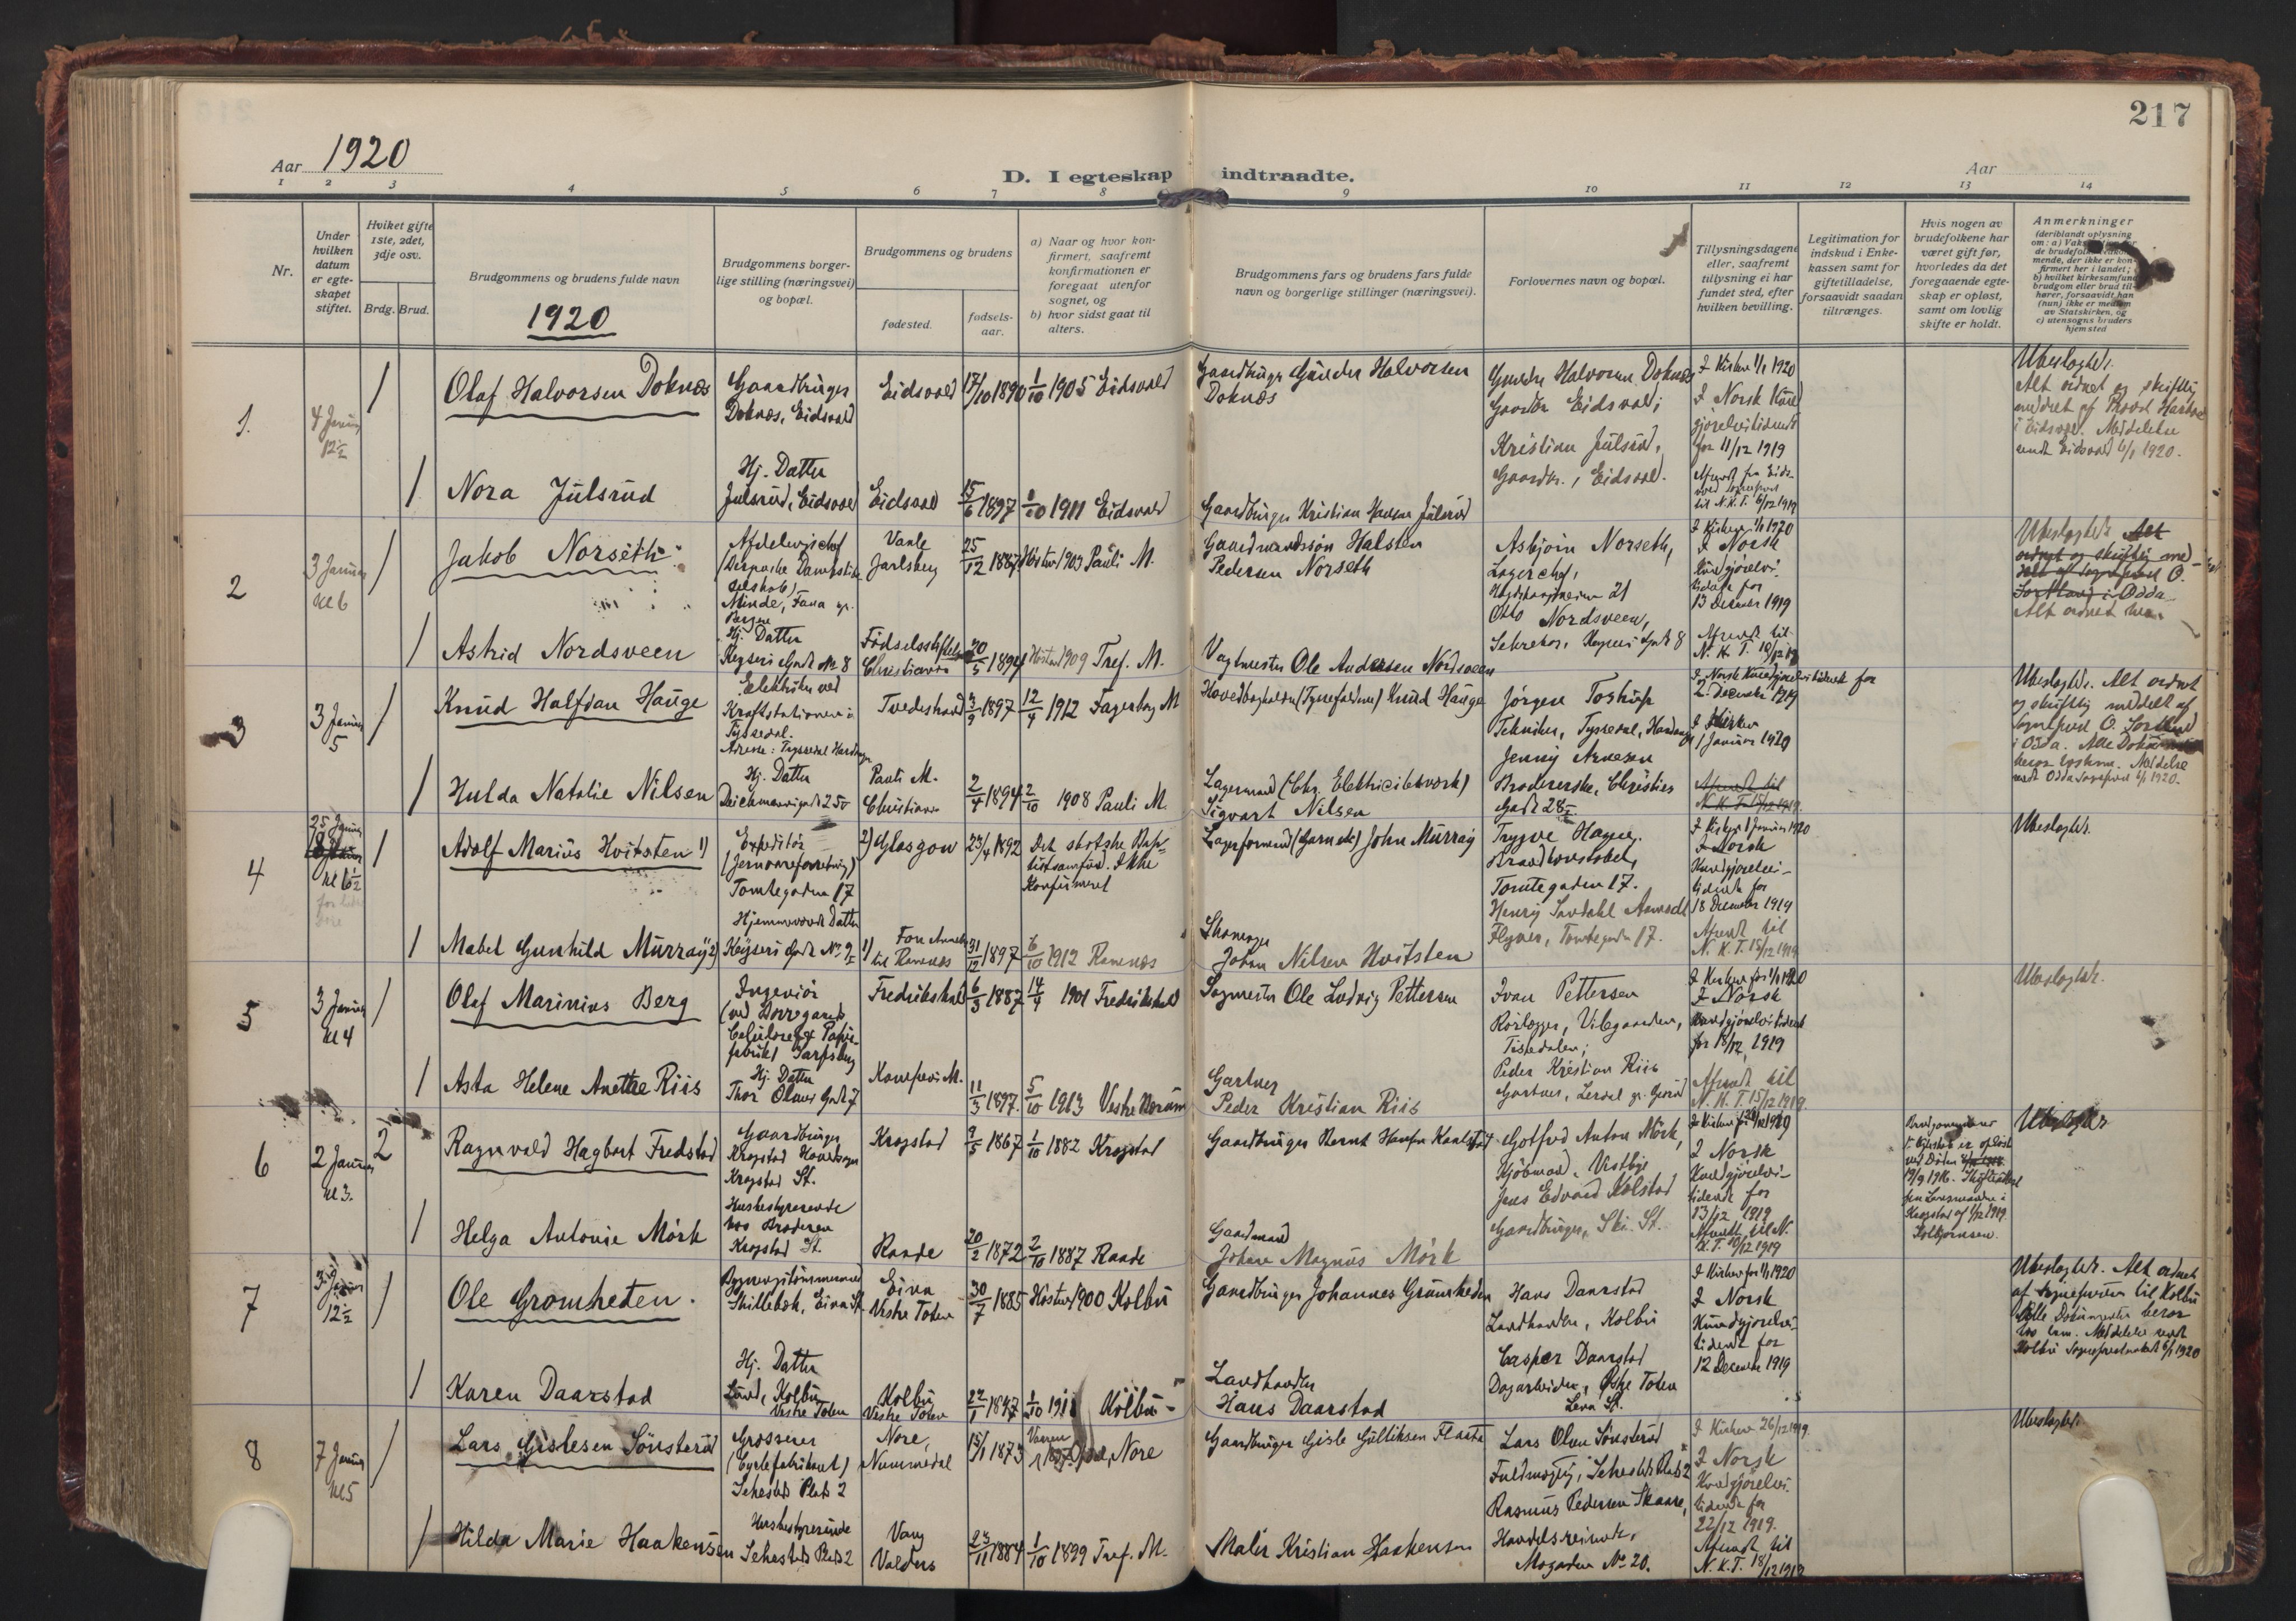 217
Aar 1920
Aar
D. I egteskap indtraadte.
1 2 3 4 5 6 7 8 9 10 11 12 13 14
Nr.
Under hvilken datum er egte-skapet stiftet.
Hviket gifte 1ste, 2det, 3dje osv.
Brdg. Brud.
Brudgommens og brudens fulde navn
1920
Brudgommens borger-lige stilling (næringsvei) og bopæl.
Brudgommens og brudens
fødested.
fødsels-aar.
a) Naar og hvor kon-firmert, saafremt konfirmationen er foregaat utenfor sognet, og
b) hvor sidst gaat til alters.
Brudgommens fars og brudens fars fulde navn og borgerlige stillinger (næringsvei).
Forlovernes navn og bopæl.
Tillysningsdagene eller, saafremt tillysning ei har fundet sted, efter hvilken bevilling.
Legitimation for indskud i Enke-kassen samt for giftetilladelse, forsaavidt saadan tiltrænges.
Hvis nogen av brudefolkene har været gift før, hvorledes da det foregaaende egte-skap er opløst, samt om lovlig skifte er holdt.
Anmerkninger
(deriblandt oplysning
mende, der ikke er kon-firmert her i landet;
b) hvilket kirkesamfund brudgom eller brud til-hører, forsaavidt han (hun) ikke er medlem av Statskirken, og
c) utensogns bruders hjemsted
1.
4 Januar
12½
1
Olaf Halvorsen Doknæs
Gaardbruger
Doknæs, Eidsvold
Eidsvold
17/10 1890
1/10 1905 Eidsvold
Gaardbruger Gunder Halvorsen
Doknæs
Gunder Halvorsen Doknæs
Gaardbr. Eidsvold;
Kristian Julsrud,
Gaardbr., Eidsvold.
I Kirken 1/1 1920
I Norsk Kund
gjørelsestidende
for 11/12 1919
til N.K.T. 6/12 1919
Ubeslægtede.
Alt ordnet og skriftlig
meddelt af Provst
i Eidsvold. Meddelelse
sendt Eidsvold 6/1 1920.
1
Nora Julsrud
Hj. Datter
Julsrud, Eidsvold
Eidsvold
15/6 1897
1/10 1911 Eidsvold
Gaardbruger Kristian Hansen Julsrud
2
3 Januar
kl 6
1
Jakob Norseth
Afdelingschef
(Bergenske Dampskibs
selskab)
Minde, Fana pr.
Bergen
Vaale
Jarlsberg
25/12 1887
Høsten 1903 Pauli M.
Gaardmandssøn Halsten
Pedersen Norseth
Asbjørn Norseth,
Lagerchef,
21
Otto Nordsveen,
Sekretær, Keysers Gade 8
I Kirken 1/1 1920
I Norsk
Kundgjørelses-
tidende for
13 December 1919
Afsendt til
N. K. T. 10/12 19
Ubeslægtede. Alt
ordnet og skriftlig med-
delt af Sogneprest O.
Sortland i Odda.
Alt ordnet her.
1
Astrid Nordsveen
Hj. Datter
Keysers Gade No 8
Fødselsstiftelsen
Christiania
20/5 1894
Høsten 1909 Tref. M.
Vagtmester Ole Andersen Nordsveen
3
3 Januar
5
1
Knud Halfdan Hauge
Elektriker ved
Kraftstationen i
Tyssedal.
Adresse: Tyssedal Hardanger
Tvedestrand
3/9 1897
12/4 1912 Fagerborg M
Knud Hauge
Jørgen Toshup
Tekniker, Tyssedal, Hardanger
Jenny Arnesen
Brodererske, Christies
Gade 28
I Norsk Kundgjørelsestidende for
2 December 1919
I Kirken
1 Januar 1920
Afsendt til
N. K. T. 15/12 1919.
Ubeslægtede. Alt ordnet
og skriftlig meddelt af
Sogneprest O. Sortland
i Odda. Alle Dokumenter
beror hos ham. Meddelelse
sendt Odda Sogneprest 6/1 1920.
1
Hulda Natalie Nilsen
Hj. Datter
Deichmannsgade 25
Pauli M.
Christiania
2/4 1894
2/10 1908 Pauli M.
Lagermand (Chr. Elektricitetsverk)
Sigvart Nilsen
4
25 Januar
kl 6½
1
Adolf Marius Hvitsten 1)
Expeditør
(Jernvareforretning)
Tomtegaden 17
2) Glasgow
23/4 1892
Det skotske Bap-
tistsamfund. Ikke
Konfirmeret
Lagerformand (Garveri) John Murray
Trygve Hagen,
Brandkonstabel,
Tomtegaden 17.
Henry Sandahl
Tomtegaden 17.
I Kirken 1 Januar 1920
I Norsk
Kundgjørelses-
tidende for
18 December 1919
Afsendt til
N. K. T. 15/12 1919
Ubeslægtede.
1
Mabel Gunhild Murray 2)
Hjemmeværende Datter
Keysers Gade No 9
1)
til Ramnæs
31/12 1897
6/10 1912 Ramnæs
Skomager
Johan Nilsen Hvitsten
5
3 Januar
kl 4
1
Olaf Marinius Berg
Ingeniør
(ved Borregaards
Celulose og Papir-
fabrik) Sarpsborg
Fredrikshald
6/3 1887
14/4 1901 Fredrikshald
Sagmester Ole Ludvig Pettersen
Ivan Pettersen
Rørlægger,
Tistedalen;
Peder Kristian Riis
Gartner,
I Kirken for 1/1 1920
I Norsk
Kundgjørelsestidende
for 18/12 1919
Afsendt til
N. K. T. 15/12 1919.
Ubeslægtede.
1
Asta Helene Anethe Riis
Hj. Datter
Thor Olsens Gade 7
Kampens M.
11/3 1897.
5/10 1913 Vestre Bærum
Gartner
Peder Kristian Riis
6
2 Januar
kl 3.
2
Ragnvald Hagbart Fredstad
Gaardbruger
Kragstad
Kragstad St.
Kragstad
9/5 1867
1/10 1882 Kragstad
Gaardbruger Bernt Hansen
Gotfred Anton Mörk,
Kjøbmand, Vestby
Jens Edvard Kolstad
Gaardbruger, Ski St.
I Norsk
Kundgjørelses-
tidende for
13/12 1919
Afsendt til N.
K. T. 10/12 1919
Brudgommens
er opløst
ved Døden
19/9 1916.
fra Lensmanden i
Kragstad af 9/12 1919
Kolbjørnsen.
Ubeslægtede
1
Helga Antonie Mörk
Husbestyrerinde
hos Broderen
Kragstad St.
Raade
20/2 1872
2/10 1887 Raade
Gaardmand
Johan Magnus Mörk
7
3 Januar
12½
1
Ole Gromheten.
Skillebæk, Eina St.
Eina
Vestre Toten
30/7 1885
Høsten 1900 Kolbu
Gaardbruger Johannes Grumheden
Hans Daarstad
Landhandler, Kolbu
Casper Daarstad
Dagarbeider, Østre Toten
Lena St.
I Kirken for 1/1 1920
I Norsk
Kundgjørelses-
tidende for
12 December 1919
Ubeslægtede. Alt ordnet
af Sogneprest til Kolbu
Alle Dokumenter beror
hos ham. Meddelelse sendt
Kolbu Sogneprestembede 6/1 1920
1
Karen Daarstad
Hj. Datter
Lund, Kolbu
Vestre Toten
Kolbu
Vestre Toten
22/1 1897
1/10 1911 Kolbu
Landhandler
Hans Daarstad
8
7 Januar
kl 5
1
Lars Gislesen Sönsterud
Grosserer
(Cyclefabrikant)
Sehesteds Plads 2
Nore,
Nummedal
15/1 1873
Vaaren
Nore
Gaardbruger Gisle Gulliksen Flaata
Lars Olsen Sønsterud
Fuldmægtig, Sehesteds Plads 2
Rasmus Pedersen Skaare,
Handelsreisende,
Mogaden No 20.
I Kirken 26/12 1919.
I Norsk
Kundgjørelses-
tidende for
22/12 1919.
Afsendt til
N. K. T. 18/12 1919
Ubeslægtede.
1
Hilda Marie Haakensen
Husbestyrerinde
Sehesteds Plads 2
Vang
Valdres
23/11 1884
1/10 1899 Tref. M.
Maler Kristian Haakensen